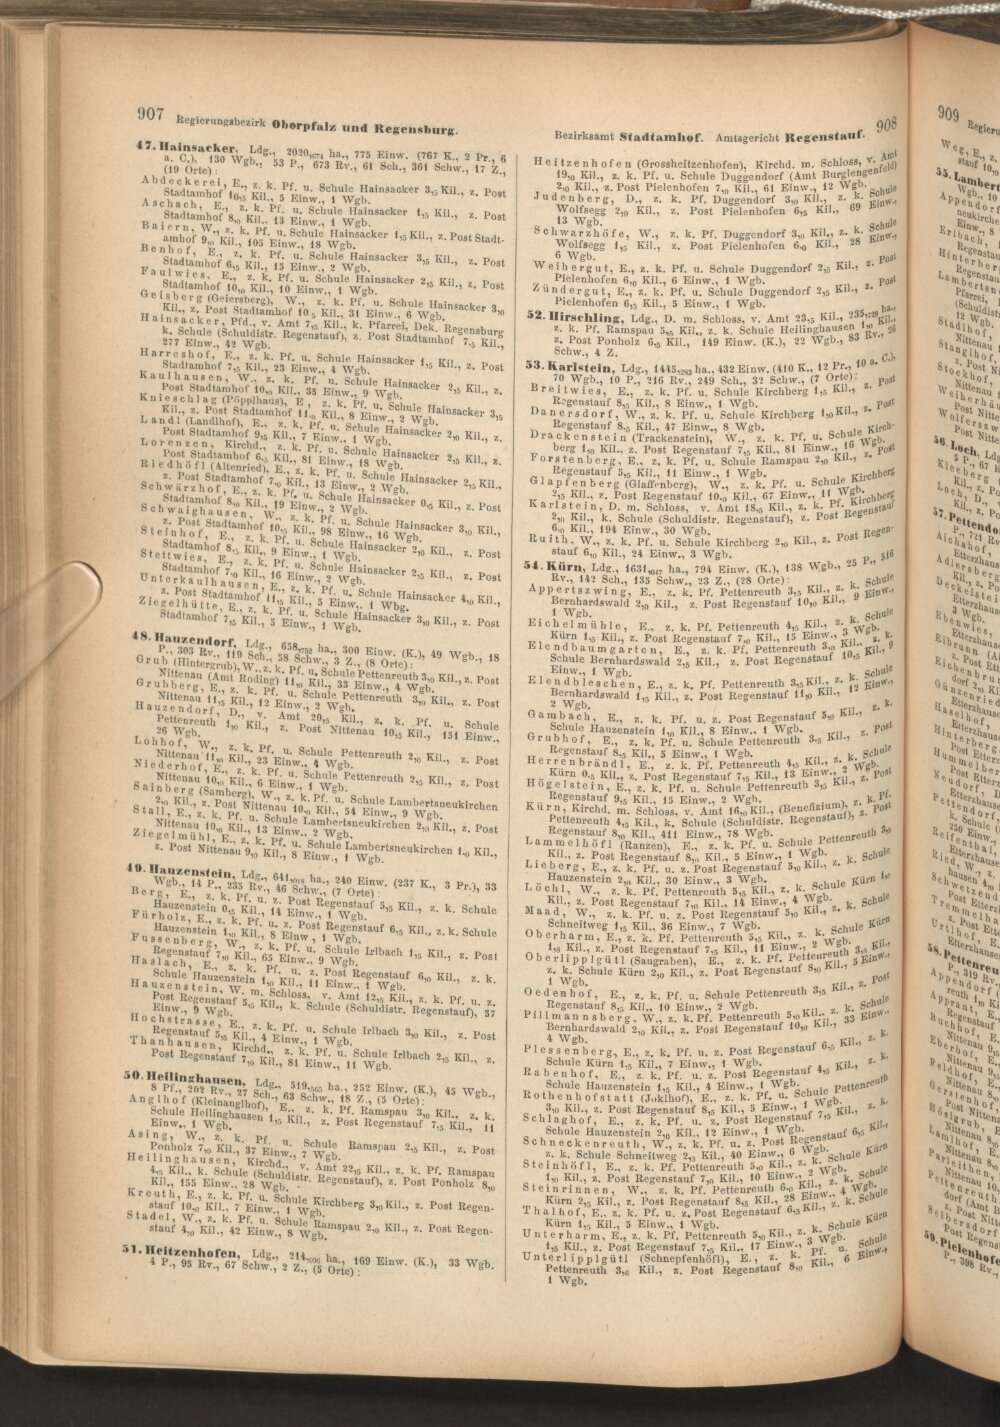 907 Regierungsbezirk Oberpfalz und Regensburg.
47. Hainsacker, Ldg., 2020,1674 ha., 775 Einw. (767 K., 2 Pr., 6
a. C.), 130 Wgb., 53 P., 673 Rv., 61 Sch., 361 Schw., 17 Z.,
(19 Orte):
Abdeckerei, E., z. k. Pf. u. Schule Hainsacker 3,5 Kil., z. Post
Stadtamhof 10,5 Kil., 5 Einw., 1 Wgb.
Aschach, E., z. k. Pf. u. Schule Hainsacker 1,5 Kil., z. Post
Stadtamhof 8,0 Kil., 13 Einw., 1 Wgb.
Baiern, W., z. k. Pf. u. Schule Hainsacker 1,5 Kil., z. Post Stadt-
amhof 9,0 Kil., 105 Einw., 18 Wgb.
Benhof, E., z. k. Pf. u. Schule Hainsacker 3,5 Kil., z. Post
Stadtamhof 6,5 Kil., 15 Einw., 2 Wgb.
Faulwies, E., z. k. Pf. u. Schule Hainsacker 2,5 Kil., z. Post
Stadtamhof 10,0 Kil., 10 Einw., 1 Wgb.
Geisberg (Geiersberg), W., z. k. Pf. u. Schule Hainsacker 3,0
Kil., z. Post Stadtamhof 10,5 Kil., 31 Einw., 6 Wgb.
Hainsacker, Pfd., v. Amt 7,5 Kil., k. Pfarrei, Dek. Regensburg
k. Schule (Schuldistr. Regenstauf), z. Post Stadtamhof 7,5 Kil.,
277 Einw., 42 Wgb.
Harreshof, E., z. k. Pf. u. Schule Hainsacker 1,5 Kil., z. Post
Stadtamhof 7,5 Kil., 23 Einw., 4 Wgb.
Kaulhausen, W., z. k. Pf. u. Schule Hainsacker 2,5 Kil., z.
Post Stadtamhof 10,0 Kil., 35 Einw., 9 Wgb.
Knieschlag (Pöpplhaus), E., z. k. Pf. u. Schule Hainsacker 3,5
Kil., z. Post Stadtamhof 11,0 Kil., 8 Einw., 2 Wgb.
Landl (Landlhof), E., z. k. Pf. u. Schule Hainsacker 2,0 Kil., z.
Post Stadtamhof 9,5 Kil., 7 Einw., 1 Wgb.
Lorenzen, Kirchd., z. k. Pf. u. Schule Hainsacker 2,5 Kil., z.
Post Stadtamhof 6,5 Kil., 81 Einw., 18 Wgb.
Riedhöfl (Altenried), E., z. k. Pf. u. Schule Hainsacker 2,5 Kil.,
z. Post Stadtamhof 7,0 Kil., 13 Einw., 2 Wgb.
Schwärzhof, E., z. k. Pf. u. Schule Hainsacker 0,5 Kil., z. Post
Stadtamhof 8,0 Kil., 19 Einw., 2 Wgb.
Schwaighausen, W., z. k. Pf. u. Schule Hainsacker 3,0 Kil.,
z. Post Stadtamhof 10,5 Kil., 98 Einw., 16 Wgb.
Steinhof, E., z. k. Pf. u. Schule Hainsacker 2,0 Kil., z. Post
Stadtamhof 8,5 Kil., 9 Einw., 1 Wgb.
Stettwies, E., z. k. Pf. u. Schule Hainsacker 2,5 Kil., z. Post
Stadtamhof 7,0 Kil., 16 Einw., 2 Wgb.
Unterkaulhausen, E., z. k. Pf. u. Schule Hainsacker 4,0 Kil.,
z. Post Stadtamhof 11,5 Kil., 5 Einw., 1 Wbg.
Ziegelhütte, E., z. k. Pf. u. Schule Hainsacker 3,0 Kil., z. Post
Stadtamhof 7,5 Kil., 5 Einw., 1 Wgb.
48. Hauzendorf, Ldg., 658,752 ha., 300 Einw. (K.), 49 Wgb., 18
P., 303 Rv., 119 Sch., 58 Schw., 3 Z., (8 Orte):
Grub (Hintergrub), W., z. k. Pf. u. Schule Pettenreuth 3,0 Kil., z. Post
Nittenau (Amt Roding) 11,0 Kil., 33 Einw., 4 Wgb.
Grubberg, E., z. k. Pf. u. Schule Pettenreuth 3,0 Kil., z. Post
Nittenau 11,5 Kil., 12 Einw., 2 Wgb.
Hauzendorf, D., v. Amt 20,5 Kil., z. k. Pf. u. Schule
Pettenreuth 1,0 Kil., z. Post Nittenau 10,5 Kil., 151 Einw.,
26 Wgb.
Lohhof, W., z. k. Pf. u. Schule Pettenreuth 2,0 Kil., z. Post
Nittenau 11,0 Kil., 23 Einw., 4 Wgb.
Niederhof, E., z. k. Pf. u. Schule Pettenreuth 2,5 Kil., z. Post
Nittenau 10,5 Kil., 6 Einw., 1 Wgb.
Sainberg (Samberg), W., z. k. Pf. u. Schule Lambertsneukirchen
2,0 Kil., z. Post Nittenau 10,0 Kil., 54 Einw., 9 Wgb.
Stall, E., z. k. Pf. u. Schule Lambertsneukirchen 2,0 Kil., z. Post
Nittenau 10,0 Kil., 13 Einw., 2 Wgb.
Ziegelmühl, E., z. k. Pf. u. Schule Lambertsneukirchen 1,0 Kil.,
z. Post Nittenau 9,0 Kil., 8 Einw., 1 Wgb.
49. Hauzenstein, Ldg., 641,018 ha., 240 Einw. (237 K., 3 Pr.), 33
Wgb., 14 P., 235 Rv., 46 Schw., (7 Orte):
Berg, E., z. k. Pf. u. z. Post Regenstauf 5,5 Kil., z. k. Schule
Hauzenstein 0,5 Kil., 14 Einw., 1 Wgb.
Fürholz, E., z. k. Pf. u. z. Post Regenstauf 6,5 Kil., z. k. Schule
Hauzenstein 1,0 Kil., 8 Einw., 1 Wgb.
Fussenberg, W., z. k. Pf. u. Schule Irlbach 1,5 Kil., z. Post
Regenstauf 7,0 Kil., 65 Einw., 9 Wgb.
Haslach, E., z. k. Pf. u. z. Post Regenstauf 6,0 Kil., z. k.
Schule Hauzenstein 1,0 Kil., 11 Einw., 1 Wgb.
Hauzenstein, W. m. Schloss, v. Amt 12,5 Kil., z. k. Pf. u. z.
Post Regenstauf 5,5 Kil., k. Schule (Schuldistr. Regenstauf), 57
Einw., 9 Wgb.
Hochstrasse, E., z. k. Pf. u. Schule Irlbach 3,0 Kil., z. Post
Regenstauf 5,5 Kil., 4 Einw., 1 Wgb.
Thanhausen, Kirchd., z. k. Pf. u. Schule Irlbach 2,5 Kil., z.
Post Regenstauf 7,0 Kil., 81 Einw., 11 Wgb.
50. Heilinghausen, Ldg., 519,565 ha., 252 Einw. (K.), 45 Wgb.,
8 Pf., 202 Rv., 27 Sch., 63 Schw., 18 Z., (5 Orte):
Anglhof (Kleinanglhof), E., z. k. Pf. Ramspau 3,0 Kil., z. k.
Schule Heilinghausen 1,5 Kil., z. Post Regenstauf 7,5 Kil., 11
Einw., 1 Wgb.
Asing, W., z. k. Pf. u. Schule Ramspau 2,5 Kil., z. Post
Ponholz 7,0 Kil., 37 Einw., 7 Wgb.
Heilinghausen, Kirchd., v. Amt 22,5 Kil., z. k. Pf. Ramspau
4,5 Kil., k. Schule (Schuldistr. Regenstauf), z. Post Ponholz 8,0
Kil., 155 Einw., 28 Wgb.
Kreuth, E., z. k. Pf. u. Schule Kirchberg 3,0 Kil., z. Post Regen-
stauf 10,0 Kil., 7 Einw., 1 Wgb.
Stadel, W., z. k. Pf. u. Schule Ramspau 2,0 Kil., z. Post Regen-
stauf 4,0 Kil., 42 Einw., 8 Wgb.
51. Heitzenhofen, Ldg., 214,8096 ha., 169 Einw. (K.), 33 Wgb.
4 P., 95 Rv., 67 Schw., 2 Z., (5 Orte):
Bezirksamt Stadtamhof. Amtsgericht Regenstauf. 908
Heitzenhofen (Grossheitzenhofen), Kirchd. m. Schloss, v. Amt
19,0 Kil., z. k. Pf. u. Schule Duggendorf (Amt Burglengenfeld)
2,0 Kil., z. Post Pielenhofen 7,0 Kil., 61 Einw., 12 Wgb.
Judenberg, D., z. k. Pf. Duggendorf 3,0 Kil., z. k. Schule
Wolfsegg 2,0 Kil., z. Post Pielenhofen 6,5 Kil., 69 Einw.,
13 Wgb.
Schwarzhöfe, W., z. k. Pf. Duggendorf 3,0 Kil., z. k. Schule
Wolfsegg 1,5 Kil., z. Post Pielenhofen 6,0 Kil., 28 Einw.,
6 Wgb.
Weihergut, E., z. k. Pf. u. Schule Duggendorf 2,5 Kil., z. Post
Pielenhofen 6,0 Kil., 6 Einw., 1 Wgb.
Zündergut, E., z. k. Pf. u. Schule Duggendorf 2,5 Kil., z. Post
Pielenhofen 6,5 Kil., 5 Einw., 1 Wgb.
52. Hirschling, Ldg., D. m. Schloss, v. Amt 23,5 Kil., 235,729 ha.,
z. k. Pf. Ramspau 5,5 Kil., z. k. Schule Heilinghausen 1,0 Kil.,
z. Post Ponholz 6,5 Kil., 149 Einw. (K.), 22 Wgb., 83 Rv., 26
Schw., 4 Z.
53. Karlstein, Ldg., 1445,1283 ha., 432 Einw. (410 K., 12 Pr., 10 a. C.),
70 Wgb., 10 P., 216 Rv., 249 Sch., 32 Schw., (7 Orte):
Breitwies, E., z. k. Pf. u. Schule Kirchberg 1,5 Kil., z. Post
Regenstauf 8,5 Kil., 8 Einw., 1 Wgb.
Danersdorf, W., z. k. Pf. u. Schule Kirchberg 1,0 Kil., z. Post
Regenstauf 8,5 Kil., 47 Einw., 8 Wgb.
Drackenstein (Trackenstein), W., z. k. Pf. u. Schule Kirch-
berg 1,0 Kil., z. Post Regenstauf 7,5 Kil., 81 Einw., 16 Wgb.
Forstenberg, E., z. k. Pf. u. Schule Ramspau 2,0 Kil., z. Post
Regenstauf 3,5 Kil., 11 Einw., 1 Wgb.
Glapfenberg (Glaffenberg), W., z. k. Pf. u. Schule Kirchberg
2,5 Kil., z. Post Regenstauf 10,0 Kil., 67 Einw., 11 Wgb.
Karlstein, D. m. Schloss, v. Amt 18,5 Kil., z. k. Pf. Kirchberg
2,0 Kil., k. Schule (Schuldistr. Regenstauf), z. Post Regenstauf
6,0 Kil., 194 Einw., 30 Wgb.
Ruith, W., z. k. Pf. u. Schule Kirchberg 2,0 Kil., z. Post Regen-
stauf 6,0 Kil., 24 Einw., 3 Wgb.
54. Kürn, Ldg., 1631,1047 ha., 794 Einw. (K.), 138 Wgb., 25 P., 516
Rv., 142 Sch., 135 Schw., 23 Z., (28 Orte):
Appertszwing, E., z. k. Pf. Pettenreuth 3,5 Kil., z. k. Schule
Bernhardswald 2,0 Kil., z. Post Regenstauf 10,0 Kil., 9 Einw.,
1 Wgb.
Eichelmühle, E., z. k. Pf. Pettenreuth 4,5 Kil., z. k. Schule
Kürn 1,5 Kil., z. Post Regenstauf 7,0 Kil., 15 Einw., 3 Wgb.
Elendbaumgarten, E., z. k. Pf. Pettenreuth 3,0 Kil., z. k.
Schule Bernhardswald 2,5 Kil., z. Post Regenstauf 10,5 Kil., 9
Einw., 1 Wgb.
Elendbleschen, E., z. k. Pf. Pettenreuth 3,5 Kil., z. k. Schule
Bernhardswald 1,5 Kil., z. Post Regenstauf 11,0 Kil., 12 Einw.,
2 Wgb.
Gambach, E., z. k. Pf. u. z. Post Regenstauf 5,0 Kil., z. k.
Schule Hauzenstein 1,0 Kil., 8 Einw., 1 Wgb.
Grubhof, E., z. k. Pf. u. Schule Pettenreuth 3,5 Kil., z. Post
Regenstauf 8,5 Kil., 5 Einw., 1 Wgb.
Herrenbrändl, E., z. k. Pf. Pettenreuth 4,5 Kil., z. k. Schule
Kürn 0,5 Kil., z. Post Regenstauf 7,5 Kil., 13 Einw., 2 Wgb.
Högelstein, E., z. k. Pf. u. Schule Pettenreuth 3,5 Kil., z. Post
Regenstauf 9,5 Kil., 15 Einw., 2 Wgb.
Kürn, Kirchd. m. Schloss, v. Amt 16,0 Kil., (Benefizium), z. k. Pf.
Pettenreuth 4,5 Kil., k. Schule (Schuldistr. Regenstauf), z. Post
Regenstauf 8,0 Kil., 411 Einw., 78 Wgb.
Lammelhöfl (Ranzen), E., z. k. Pf. u. Schule Pettenreuth 3,5
Kil., z. Post Regenstauf 8,0 Kil., 5 Einw., 1 Wgb.
Lieberg, E., z. k. Pf. u. z. Post Regenstauf 5,5 Kil., z. k. Schule
Hauzenstein 2,0 Kil., 30 Einw., 3 Wgb.
Löchl, W., z. k. Pf. Pettenreuth 5,5 Kil., z. k. Schule Kürn 1,0
Kil., z. Post Regenstauf 7,0 Kil., 14 Einw., 4 Wgb.
Maad, W., z. k. Pf. u. z. Post Regenstauf 5,0 Kil., z. k. Schule
Schneitweg 1,5 Kil., 36 Einw., 7 Wgb.
Oberharm, E., z. k. Pf. Pettenreuth 5,5 Kil., z. k. Schule Kürn
1,5 Kil., z. Post Regenstauf 7,5 Kil., 11 Einw., 2 Wgb.
Oberlipplgütl (Saugraben), E., z. k. Pf. Pettenreuth 3,5 Kil.,
z. k. Schule Kürn 2,0 Kil., z. Post Regenstauf 8,0 Kil., 5 Einw.,
1 Wgb.
Oedenhof, E., z. k. Pf. u. Schule Pettenreuth 3,5 Kil., z. Post
Regenstauf 8,5 Kil., 10 Einw., 2 Wgb.
Pillmannsberg, W., z. k. Pf. Pettenreuth 5,0 Kil., z. k. Schule
Bernhardswald 2,0 Kil., z. Post Regenstauf 10,0 Kil., 33 Einw.,
4 Wgb.
Plessenberg, E., z. k. Pf. u. z. Post Regenstauf 6,5 Kil., z. k.
Schule Kürn 1,5 Kil., 7 Einw., 1 Wgb.
Rabenhof, E., z. k. Pf. u. z. Post Regenstauf 4,5 Kil., z. k.
Schule Hauzenstein 1,5 Kil., 4 Einw., 1 Wgb.
Rothenhofstatt (Joklhof), E., z. k. Pf. u. Schule Pettenreuth
3,0 Kil., z. Post Regenstauf 8,5 Kil., 5 Einw., 1 Wgb.
Schlaghof, E., z. k. Pf. u. z. Post Regenstauf 7,5 Kil., z. k.
Schule Hauzenstein 2,0 Kil., 12 Einw., 1 Wgb.
Schneckenreuth, W., z. k. Pf. u. z. Post Regenstauf 6,5 Kil.,
z. k. Schule Schneitweg 2,5 Kil., 40 Einw., 6 Wgb.
Steinhöfl, E., z. k. Pf. Pettenreuth 5,0 Kil., z. k. Schule Kürn
1,0 Kil., z. Post Regenstauf 7,0 Kil., 10 Einw., 2 Wgb.
Steinrinnen, W., z. k. Pf. Pettenreuth 6,0 Kil., z. k. Schule
Kürn 2,5 Kil., z. Post Regenstauf 8,5 Kil., 28 Einw., 4 Wgb.
Thalhof, E., z. k. Pf. u. z. Post Regenstauf 6,5 Kil., z. k. Schule
Kürn 1,5 Kil., 5 Einw., 1 Wgb.
Unterharm, E., z. k. Pf. Pettenreuth 5,0 Kil., z. k. Schule Kürn
1,5 Kil., z. Post Regenstauf 7,5 Kil., 17 Einw., 3 Wgb.
Unterlipplgütl (Schnepfenhöfl), E., z. k. Pf. u. Schule
Pettenreuth 3,5 Kil., z. Post Regenstauf 8,0 Kil., 6 Einw.,
1 Wgb.
909
55. Lambert
56. Loch, Ldg
57. Pettendo
58. Pettenreu
59. Pielenhofe
P., 398 Rv.,